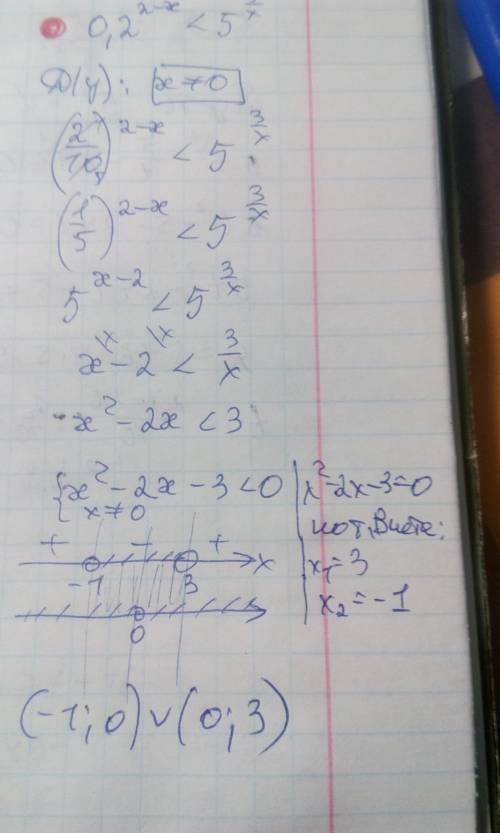 0,2^{2-x} < 5^{\frac{3}{x}}
D(y): x≠0
(\frac{2}{10})^{2-x} < 5^{\frac{3}{x}}
(\frac{1}{5})^{2-x} < 5^{\frac{3}{x}}
5^{x-2} < 5^{\frac{3}{x}}
x^{\x} - 2^{\x} < \frac{3}{x}
x² - 2x < 3
{x² - 2x - 3 < 0
x≠0
x² - 2x - 3 = 0
по т. Виета:
x₁ = 3
x₂ = -1
+ - + x
-1 3
0
(-1; 0) ∪ (0; 3)